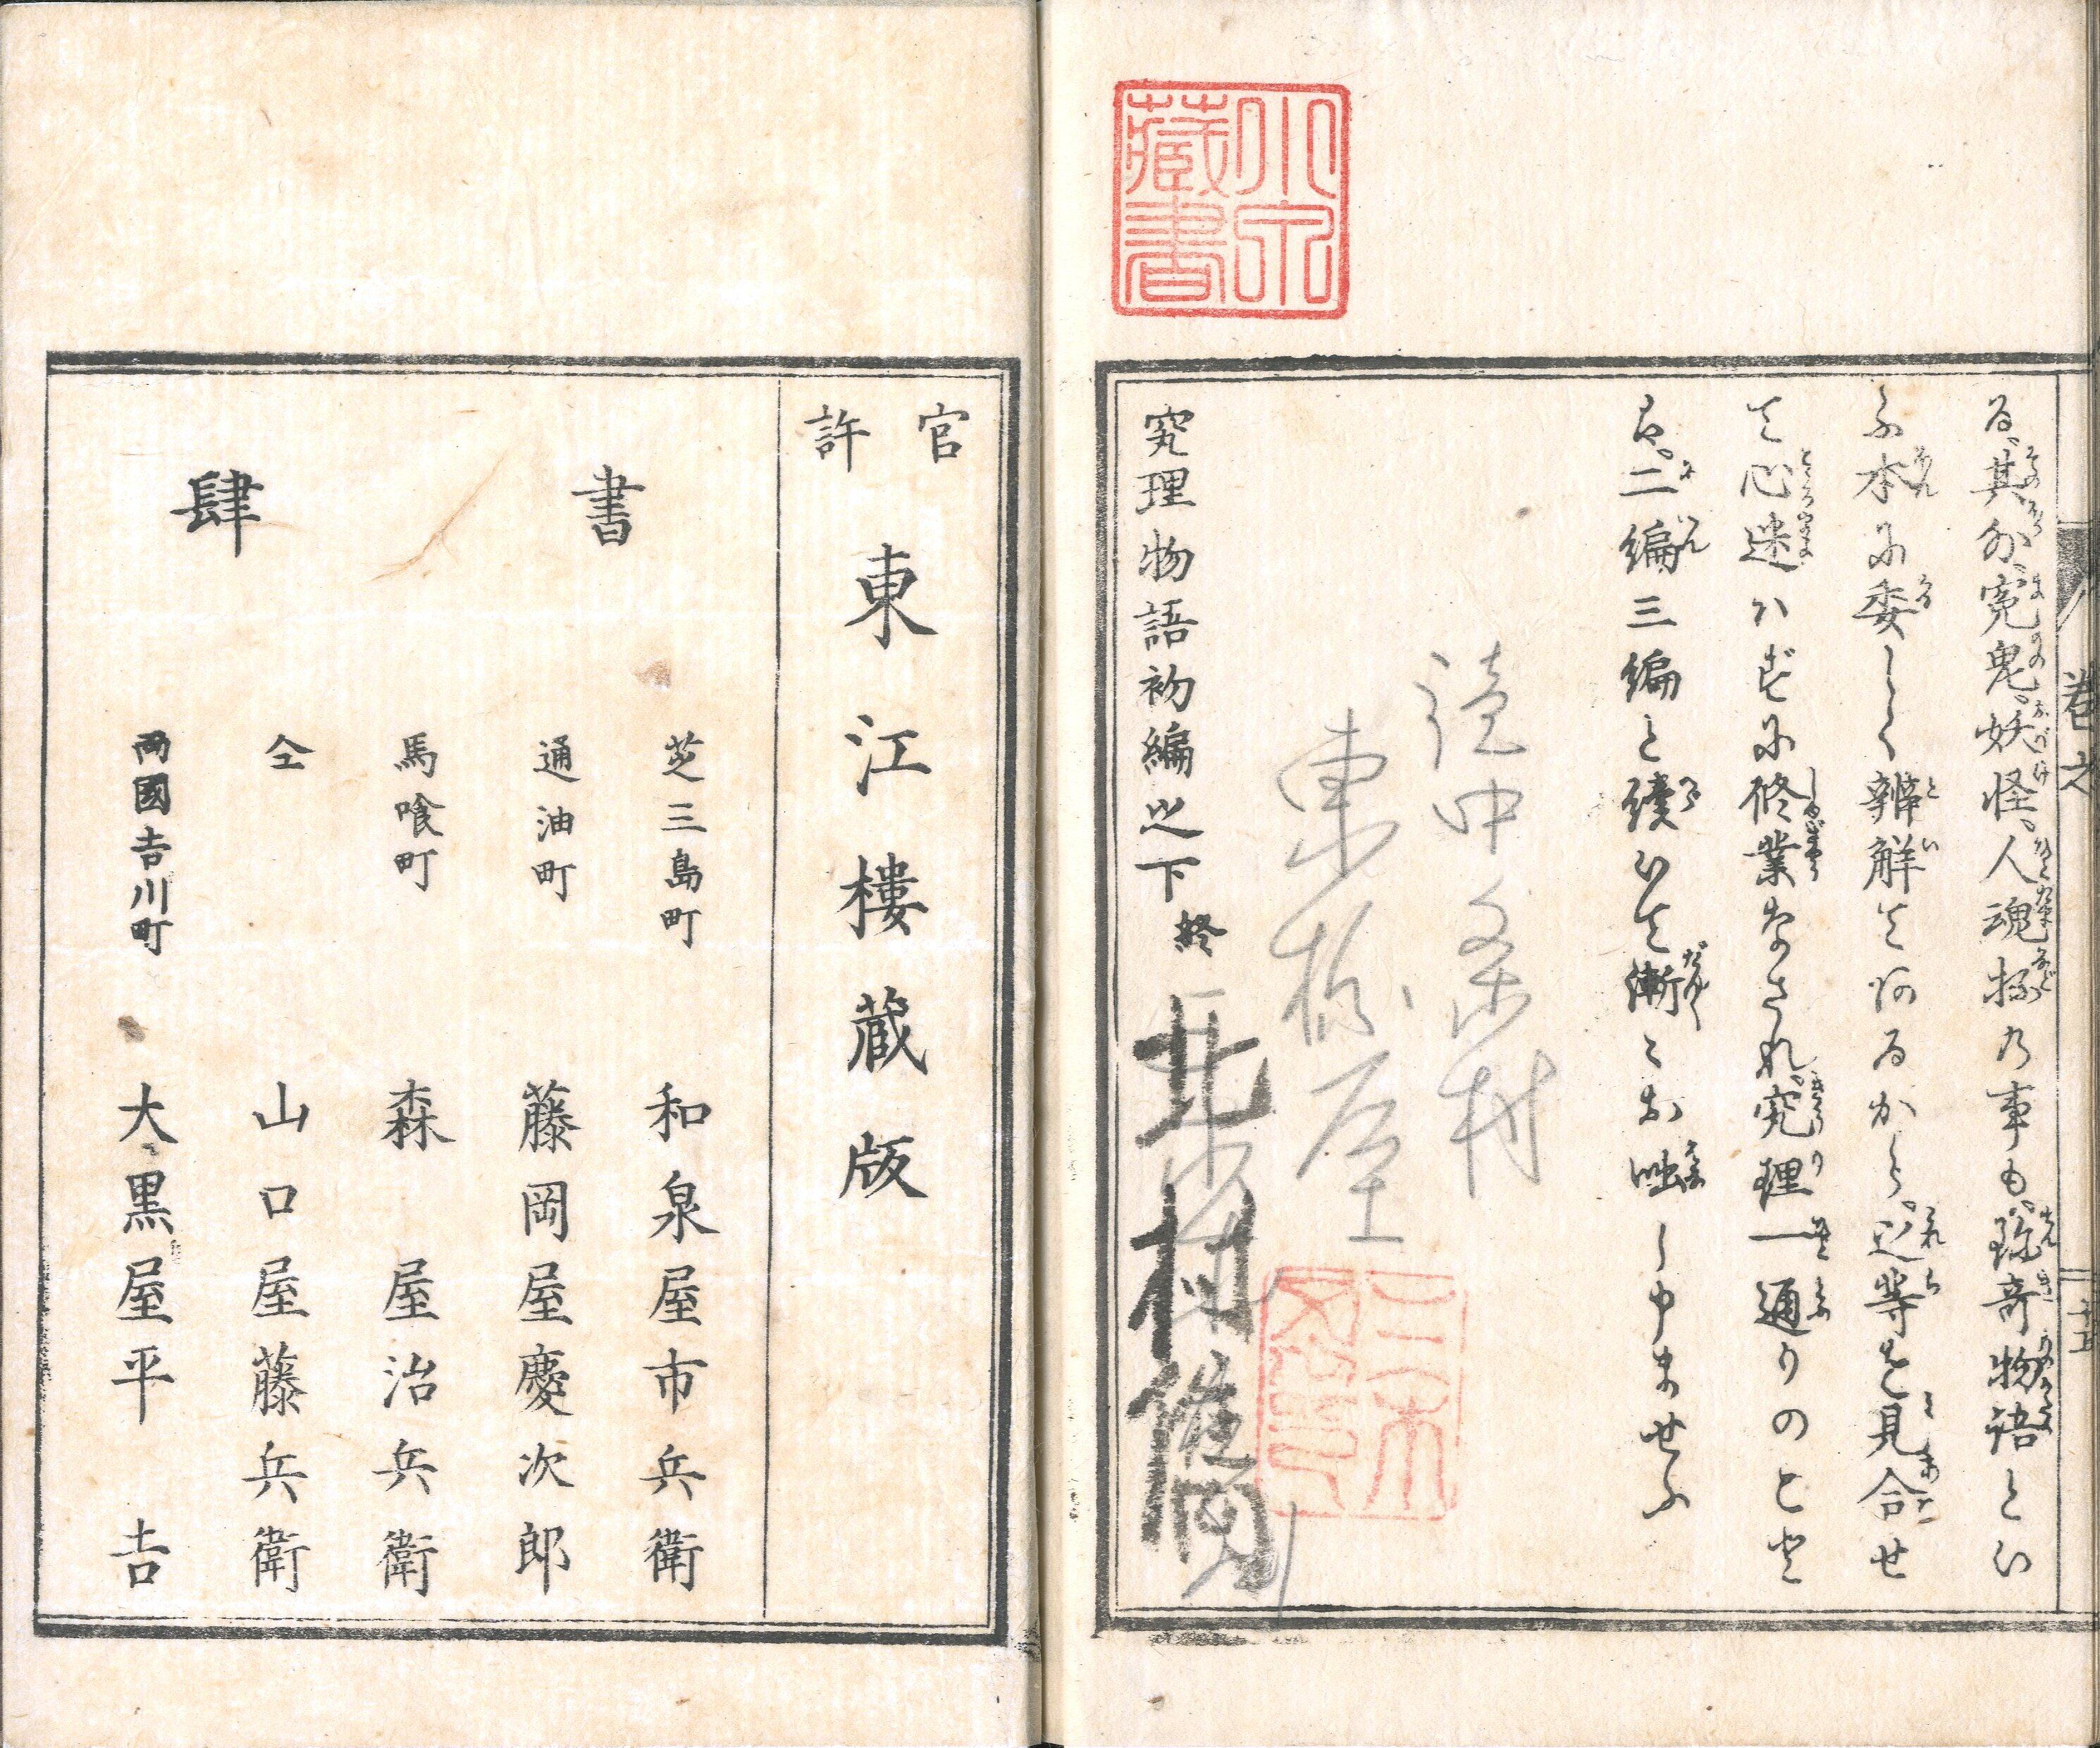 小泉
蔵書
巻之
十五
る、其外、冤鬼。妖怪。人魂抔の事も。珎奇物語とい
ふ本に委しく辨觧てあるから。辺等を見合せ
て心迷はずに修業なされ。究理一通りのこと
は。二編三編と續いて漸〻お咄し申ませふ
東橋屋
究理物語初編之下終
北村
官許
東江樓蔵版
書肆
芝三島町 和泉屋市兵衛
通油町 藤岡屋慶次郎
馬喰町 森屋治兵衛
仝 山口屋藤兵衛
兩國吉川町 大黒屋平吉